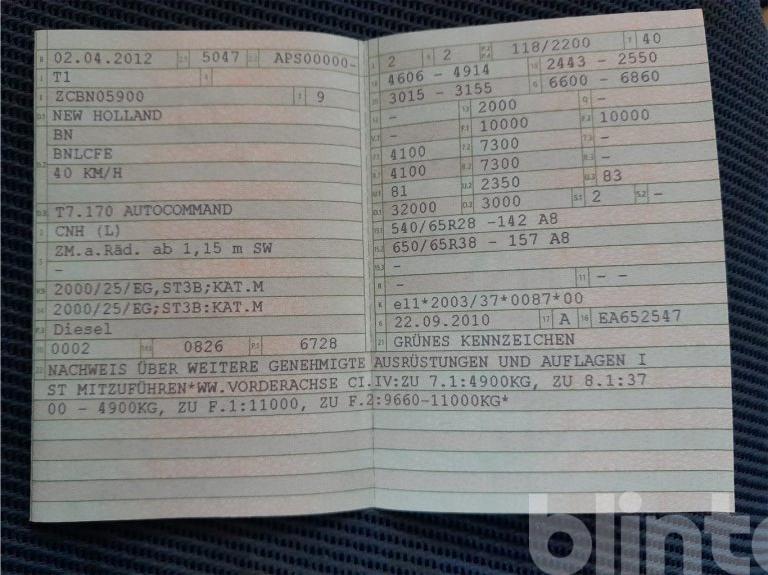 B 02.04.2012 2.1 5047 2.2 APS00000-
J T1 4
E ZCBN05900 3 9
D.1 NEW HOLLAND
BN
D.2 BNLCFE
40 KM/H
D.3 T7.170 AUTOCOMMAND
2 CNH (L)
5 ZM.a.Räd. ab 1,15 m SW
-
V.9 2000/25/EG,ST3B;KAT.M
14 2000/25/EG;ST3B:KAT.M
P.3 Diesel
10 0002 14.1 0826 P.1 6728
L 2 9 2 P.2 P.4 118/2200 T 40
18 4606 - 4914 19 2443 - 2550
20 3015 - 3155 G 6600 - 6860
12 - 13 2000 Q -
V.7 - F.1 10000 F.2 10000
7.1 4100 7.2 7300 7.3 -
8.1 4100 8.2 7300 8.3 -
U.1 81 U.2 2350 U.3 83
O.1 32000 O.2 3000 S.1 2 S.2 -
15.1 540/65R28 -142 A8
15.2 650/65R38 - 157 A8
15.3 -
R - 11 - -
K e11*2003/37*0087*00
6 22.09.2010 17 A 16 EA652547
21 GRÜNES KENNZEICHEN
22 NACHWEIS ÜBER WEITERE GENEHMIGTE AUSRÜSTUNGEN UND AUFLAGEN I
ST MITZUFÜHREN*WW.VORDERACHSE CI.IV:ZU 7.1:4900KG, ZU 8.1:37
00 - 4900KG, ZU F.1:11000, ZU F.2:9660-11000KG*
blinto